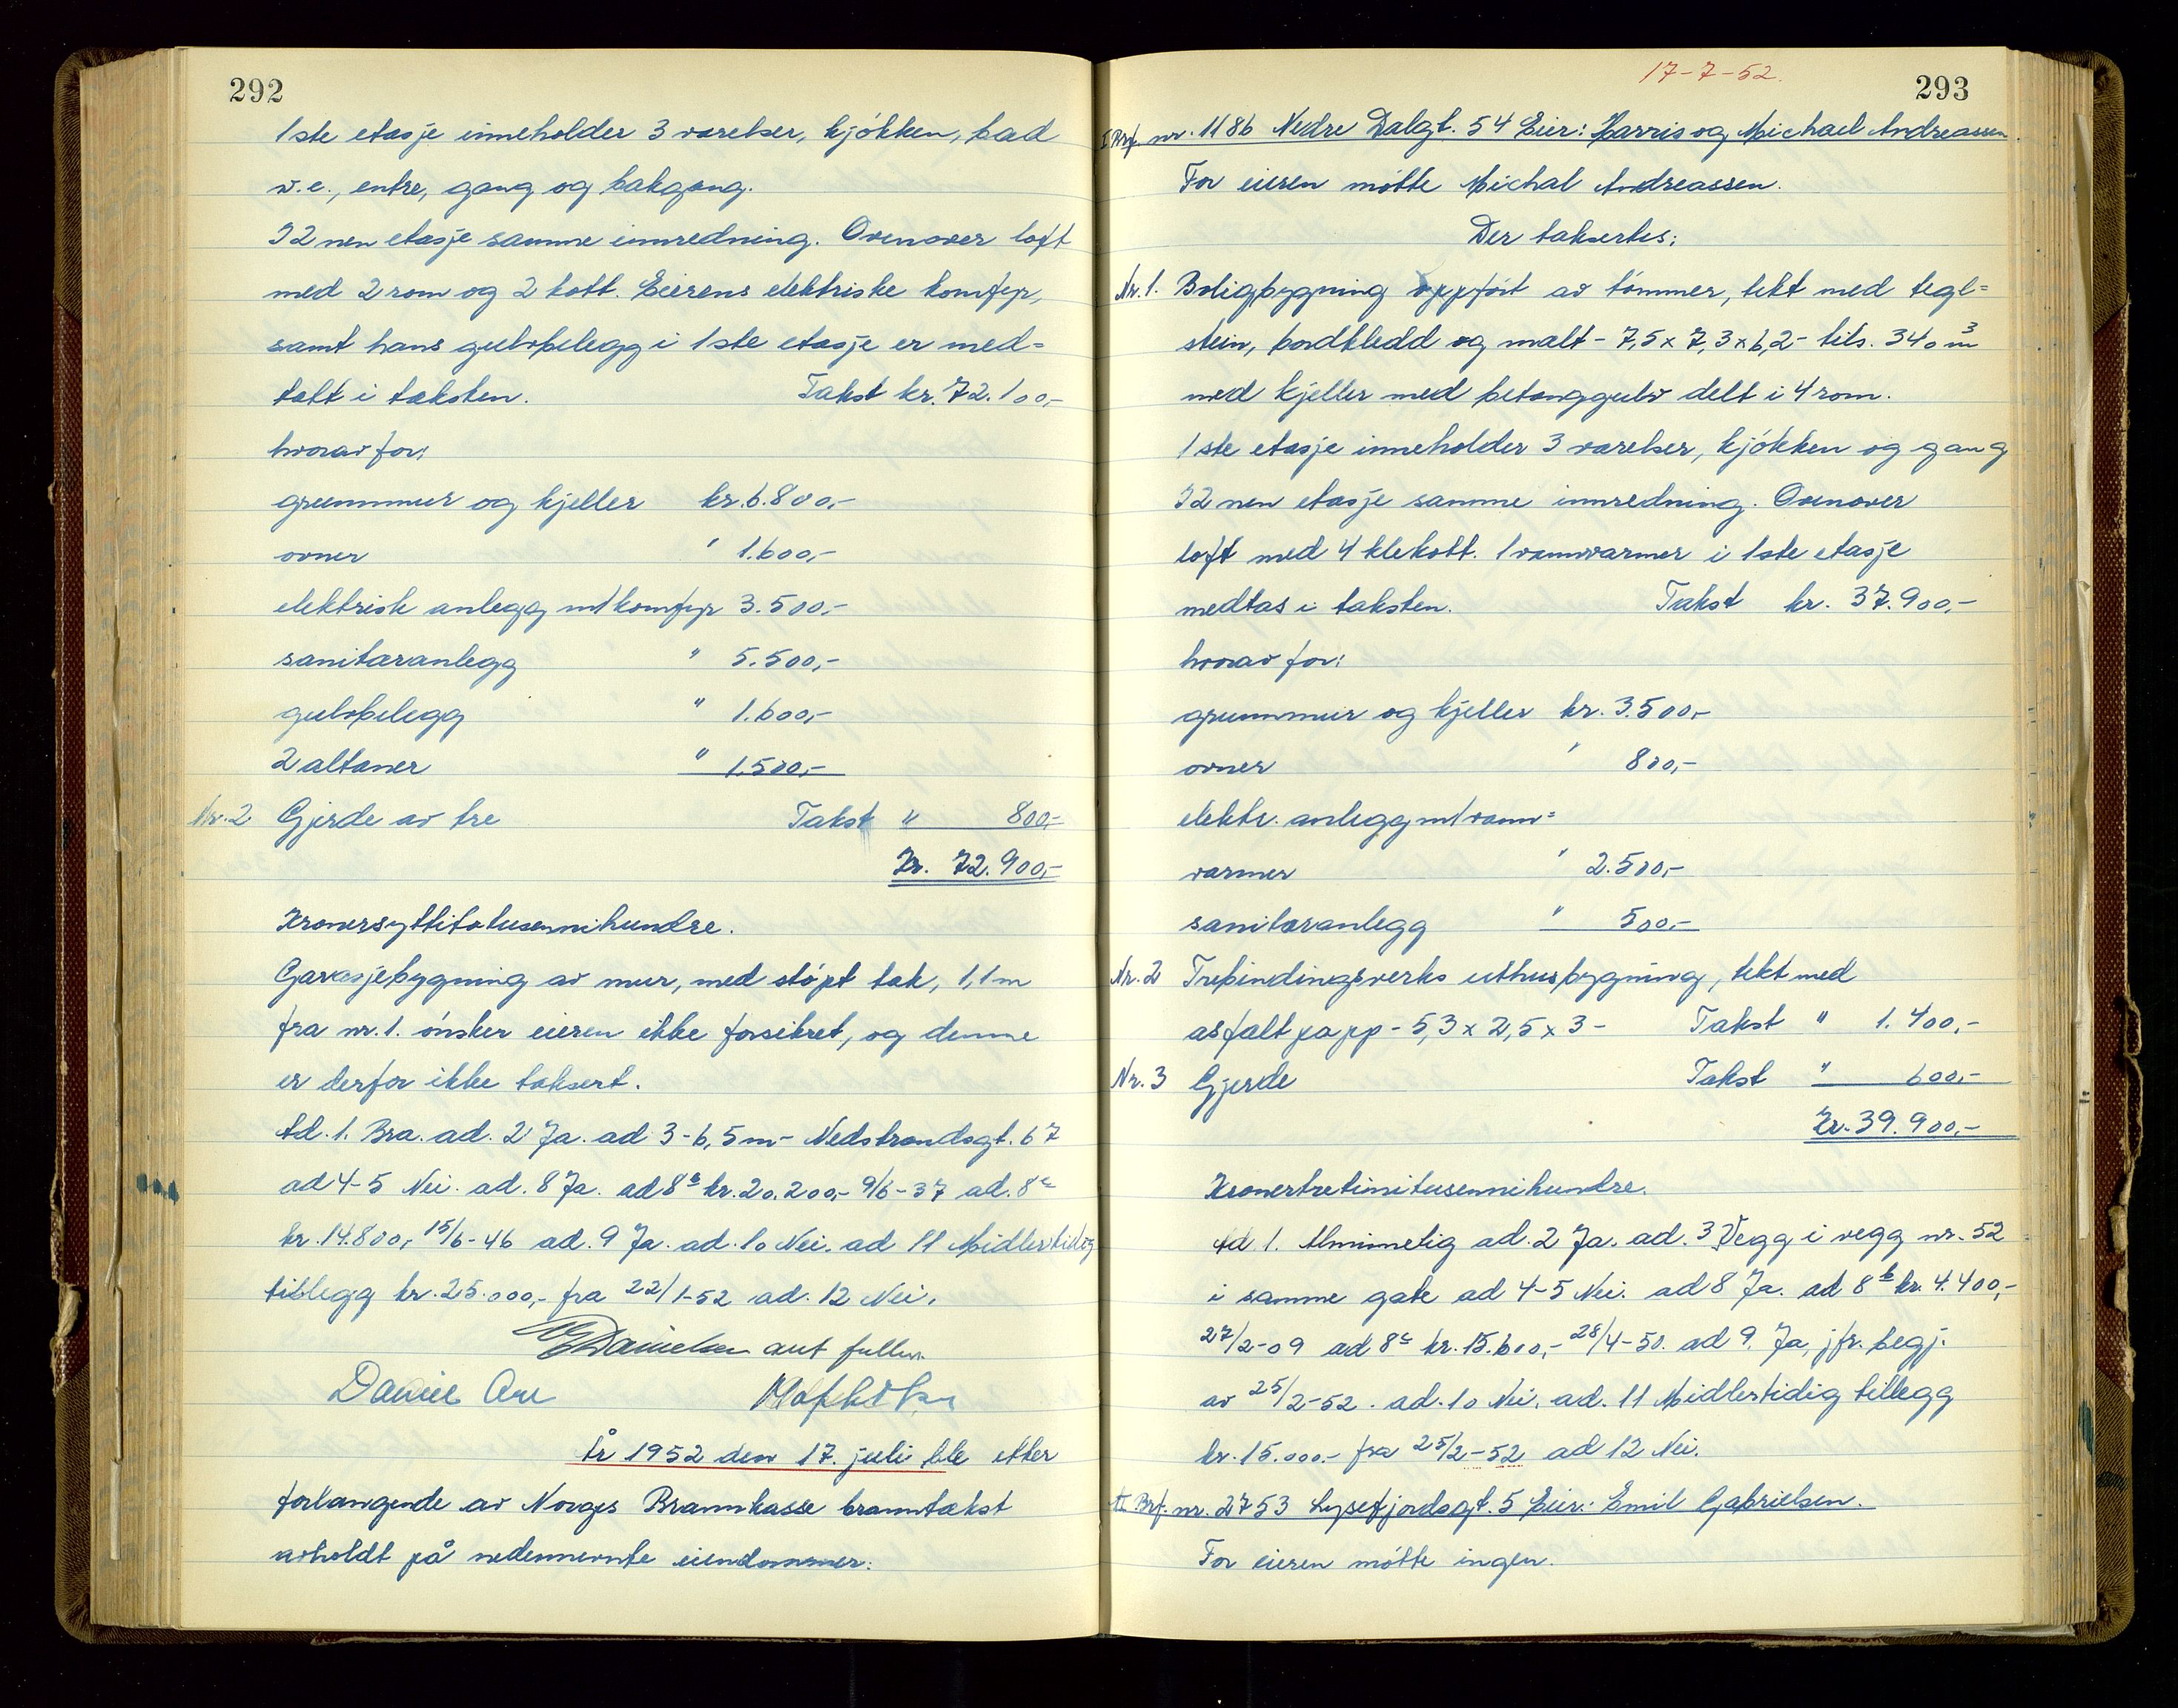 292
1ste etasje inneholder 3 værelser, kjøkken, bad
w.c., entre, gang og bakgang.
I 2nen etasje samme innredning. Ovenover loft
med 2 rom og 2 kott. Eierens elektriske komfyr,
samt hans gulvbelegg i 1ste etasje er med=
tatt i taksten. Takst kr. 72.100,-
hvorav for:
grunnmur og kjeller kr. 6.800,-
ovner " 1.600,-
elektrisk anlegg m/komfyr 3.500,-
sanitæranlegg " 5.500,-
gulvbelegg " 1.600,-
2 altaner " 1.500,-
Nr. 2 Gjerde av tre Takst " 800,-
Kr. 72.900,-
Kronersyttitotusennihundre.
Garasjebygning av mur, med støpt tak, 1,1 m
fra nr. 1. ønsker eieren ikke forsikret, og denne
er derfor ikke taksert.
Ad. 1. Bra. ad. 2 Ja. ad 3 - 6,5 m - Nedstrandsgt. 67
ad 4-5 Nei. ad. 8 Ja. ad 8b kr. 20.200,- 9/6-37 ad. 8c
kr. 14.800,- 15/6-46 ad. 9 Ja. ad. 10 Nei. ad 11 Midlertidig
tillegg kr. 25.000,- fra 22/1-52 ad. 12 Nei.
Danielsen aut fullm.
Daniel
År 1952 den 17. juli ble etter
forlangende av Norges Brannkasse branntakst
avholdt på nedennevnte eiendommer:
17-7-52.
293
I Brf. nr. 1186 Nedre Dalgt. 54 Eier: Harris og Michael Andreassen.
For eieren møtte Michal Andreassen.
Der taksertes:
Nr. 1. Boligbygning oppført av tømmer, tekt med tegl=
stein, bordkledd og malt - 7,5 x 7,3 x 6,2 - tils. 340 m³
med kjeller med betonggulv delt i 4 rom.
1ste etasje inneholder 3 værelser, kjøkken og gang
I 2nen etasje samme innredning. Ovenover
loft med 4 klekott. 1 vannvarmer i 1ste etasje
medtas i taksten. Takst kr. 37.900,-
hvorav for:
grunnmur og kjeller kr. 3.500,-
ovner " 800,-
elektr. anlegg m/vann=
varmer " 2.500,-
sanitæranlegg " 500,-
Nr. 2 Trebindingsverks uthusbygning, tekt med
asfaltpapp - 5,3 x 2,5 x 3 - Takst " 1.400,-
Nr. 3 Gjerde Takst " 600,-
Kr. 39.900,-
Kronertrettinitusennihundre.
Ad 1. Alminnelig ad. 2 Ja. ad. 3 Vegg i vegg nr. 52
i samme gate ad 4-5 Nei. ad 8 Ja. ad 8b kr. 4.400,-
27/2-09 ad 8c kr. 15.600,- 28/4-50. ad 9. Ja, jfr. begj.
av 25/2-52. ad. 10 Nei. ad. 11 Midlertidig tillegg
kr. 15.000.- fra 25/2-52 ad 12 Nei.
II Brf. nr. 2753 Lysefjordsgt. 5 Eier: Emil Gabrielsen.
For eieren møtte ingen.